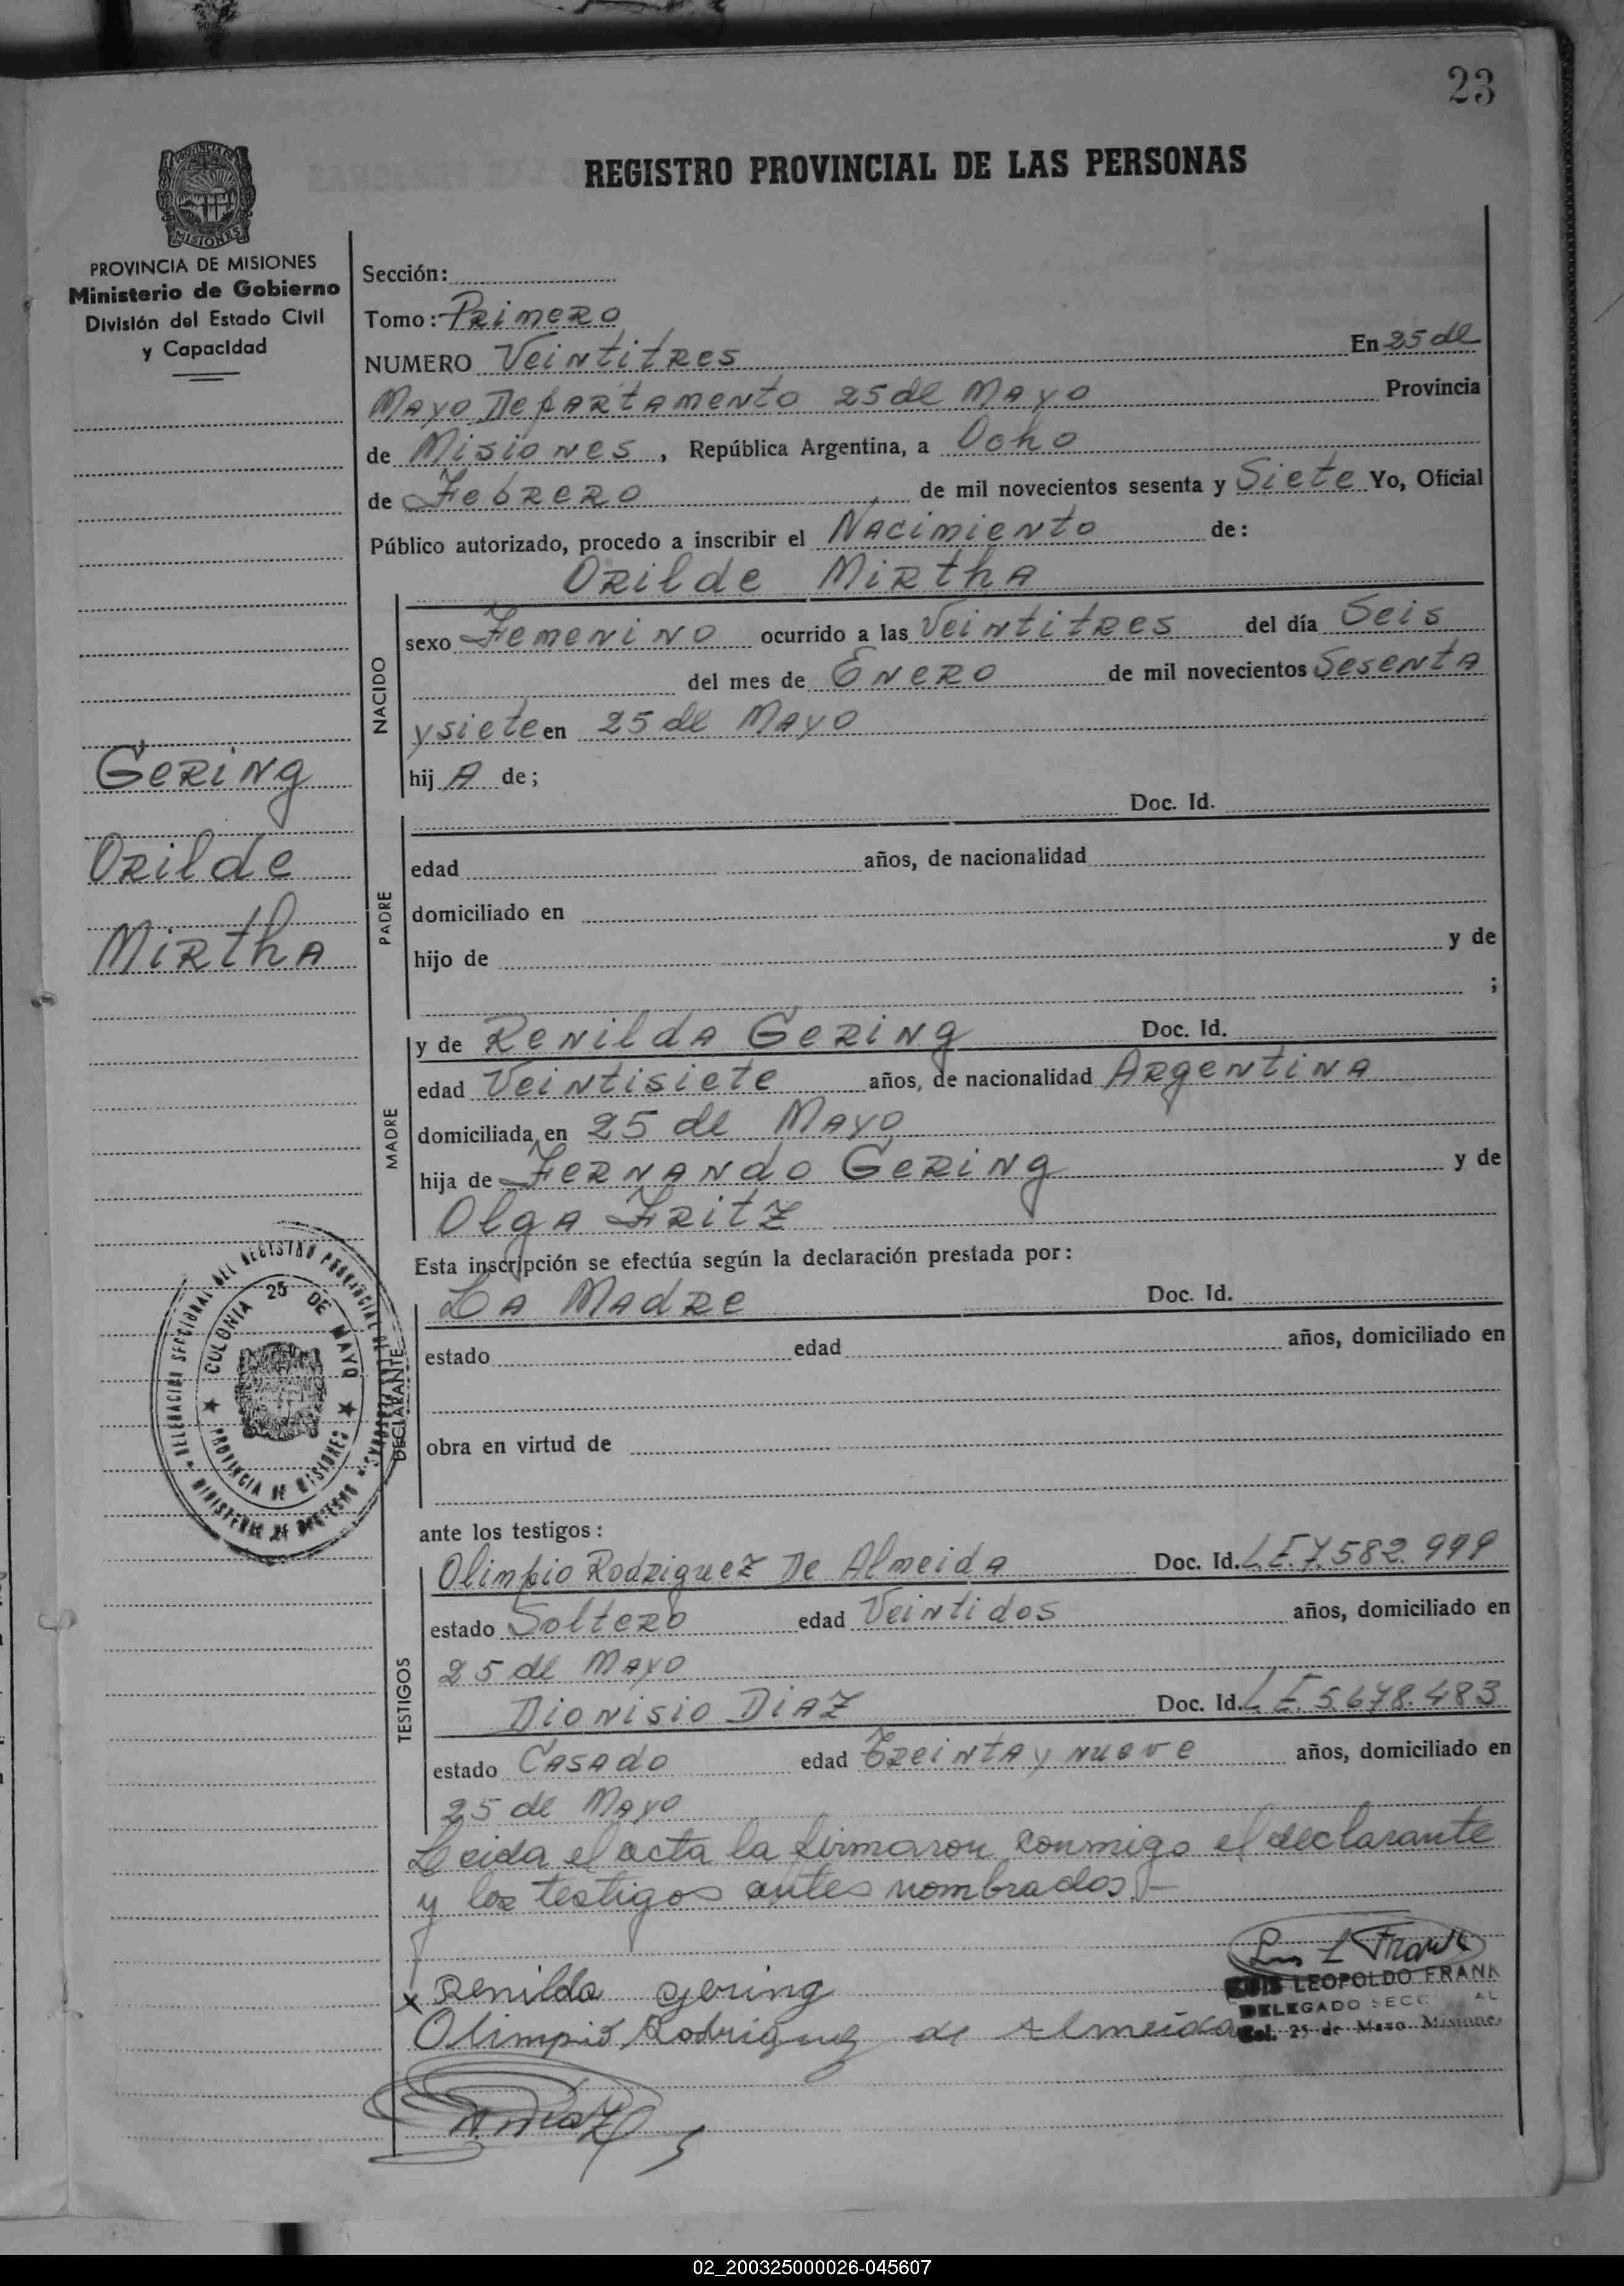 23
REGISTRO PROVINCIAL DE LAS PERSONAS
PROVINCIA DE MISIONES
Ministerio de Gobierno
División del Estado Civil
y Capacidad
Gering
Orilde
Mirtha
Sección:
Tomo: Primero
NUMERO Veintitres En 25 de
Mayo Departamento 25 de Mayo Provincia
de Misiones, República Argentina, a Ocho
de Febrero de mil novecientos sesenta y Siete Yo, Oficial
Público autorizado, procedo a inscribir el Nacimiento de:
Orilde Mirtha
NACIDO
sexo Femenino ocurrido a las Veintitres del día Seis
del mes de Enero de mil novecientos Sesenta
y siete en 25 de Mayo
hij A de;
PADRE
Doc. Id.
edad años, de nacionalidad
domiciliado en
hijo de y de
;
MADRE
y de Renilda Gering Doc. Id.
edad Veintisiete años, de nacionalidad Argentina
domiciliada en 25 de Mayo
hija de Fernando Gering y de
Olga Fritz
Esta inscripción se efectúa según la declaración prestada por:
DECLARANTE
La Madre Doc. Id.
estado edad años, domiciliado en
obra en virtud de
DELEGACION SECCIONAL DEL REGISTRO PROVINCIAL DE LAS PERSONAS
MINISTERIO DE GOBIERNO
COLONIA 25 DE MAYO
PROVINCIA DE MISIONES
ante los testigos:
TESTIGOS
Olimpio Rodriguez De Almeida Doc. Id. LE 7.582.999
estado Soltero edad Veintidos años, domiciliado en
25 de Mayo
Dionisio Diaz Doc. Id. L E. 5.678.483
estado Casado edad Treinta y nueve años, domiciliado en
25 de Mayo
Leida el acta la firmaron conmigo el declarante
y los testigos antes nombrados.-
Luis L Frank
LUIS LEOPOLDO FRANK
DELEGADO SECC AL
Col. 25 de Mayo Misiones
x Renilda gering
Olimpio Rodriguez de Almeida
Diaz
02_200325000026-045607